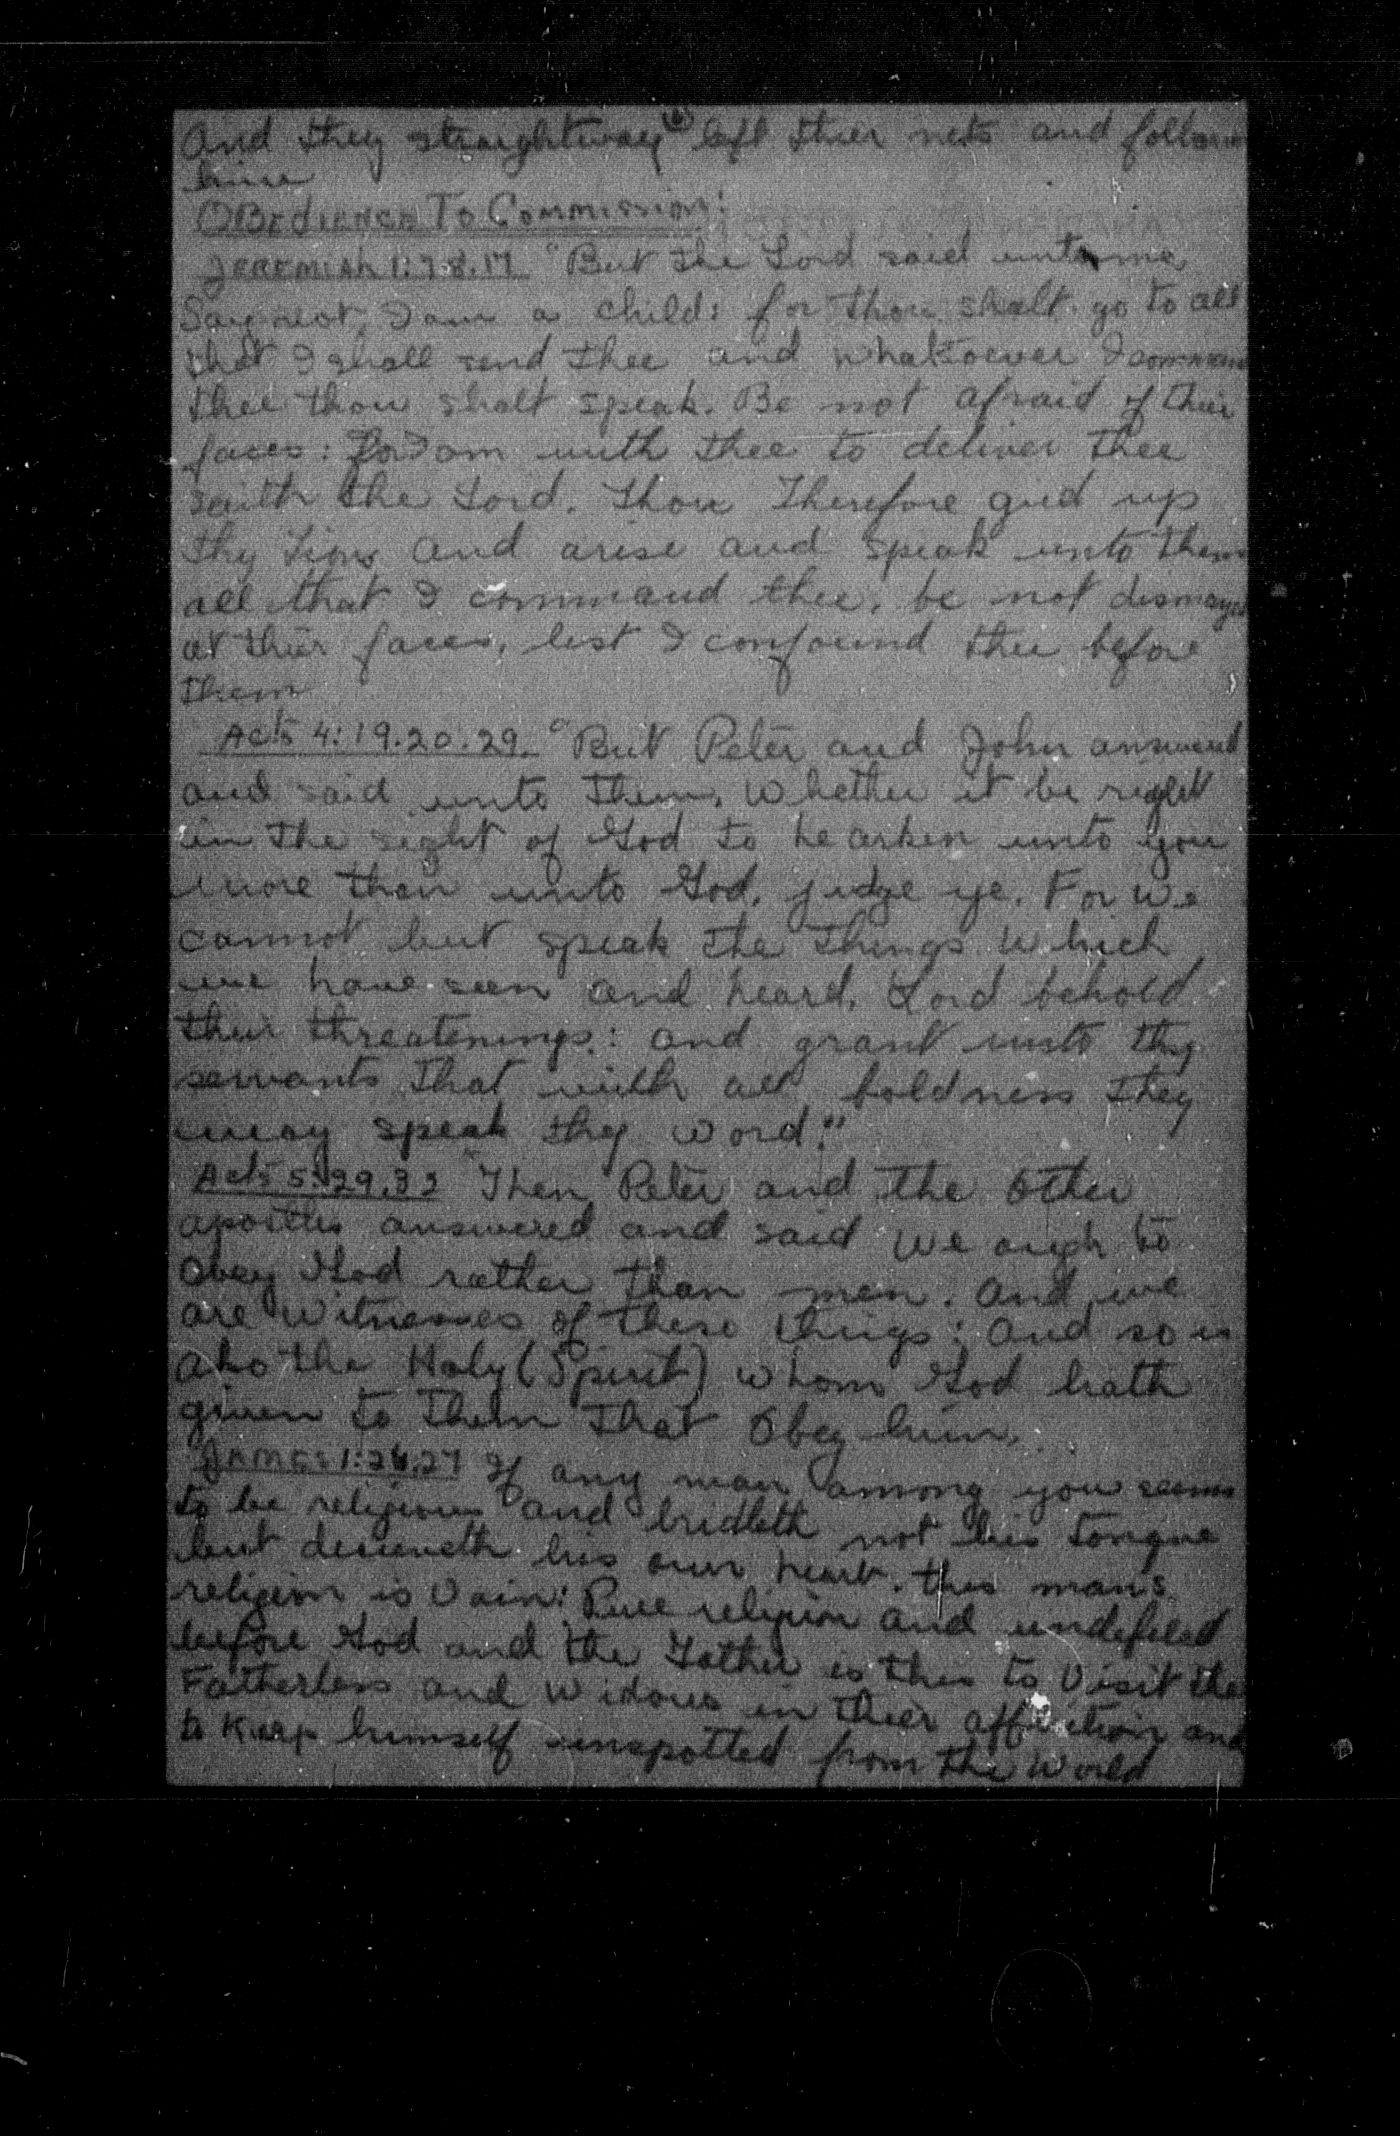 (6)
And they straightway left thier nets and follow
him
OBedience To Commission:
JEREMIAH 1:7.8.17 "But the Lord said unto me,
Say not, I am a child: for thou shalt go to all
that I shall send thee and whatsoever I command
thee thou shalt speak. Be not afraid of their
faces: for I am with thee to deliver thee
saith the Lord. Thou Therefore gird up
thy lips and arise and speak unto them
all that I command thee, be not dismayed
at their faces, lest I confound thee before
them
Acts 4:19.20.29. "But Peter and John answered
and said unto them, Whether it be right
in the sight of God to hearken unto you
more than unto God, judge ye. For we
cannot but speak the things which
we have seen and heard, Lord behold
their threatenings: and grant unto thy
servants that with all boldness they
may speak thy word."
Acts 5:29.32 "Then Peter and the other
apostles answered and said we ough to
obey God rather than men. And we
are witnesses of these things: and so is
also the Holy (Spirit) whom God hath
given to them that obey him.
James 1:26.27 If any man among you seems
to be religious and bridleth not his tongue
but deceiveth his own heart. this mans
religion is vain: Pure religion and undefiled
before God and the Father is this to visit the
Fatherless and widows in thier affliction and
to keep himself unspotted from the world